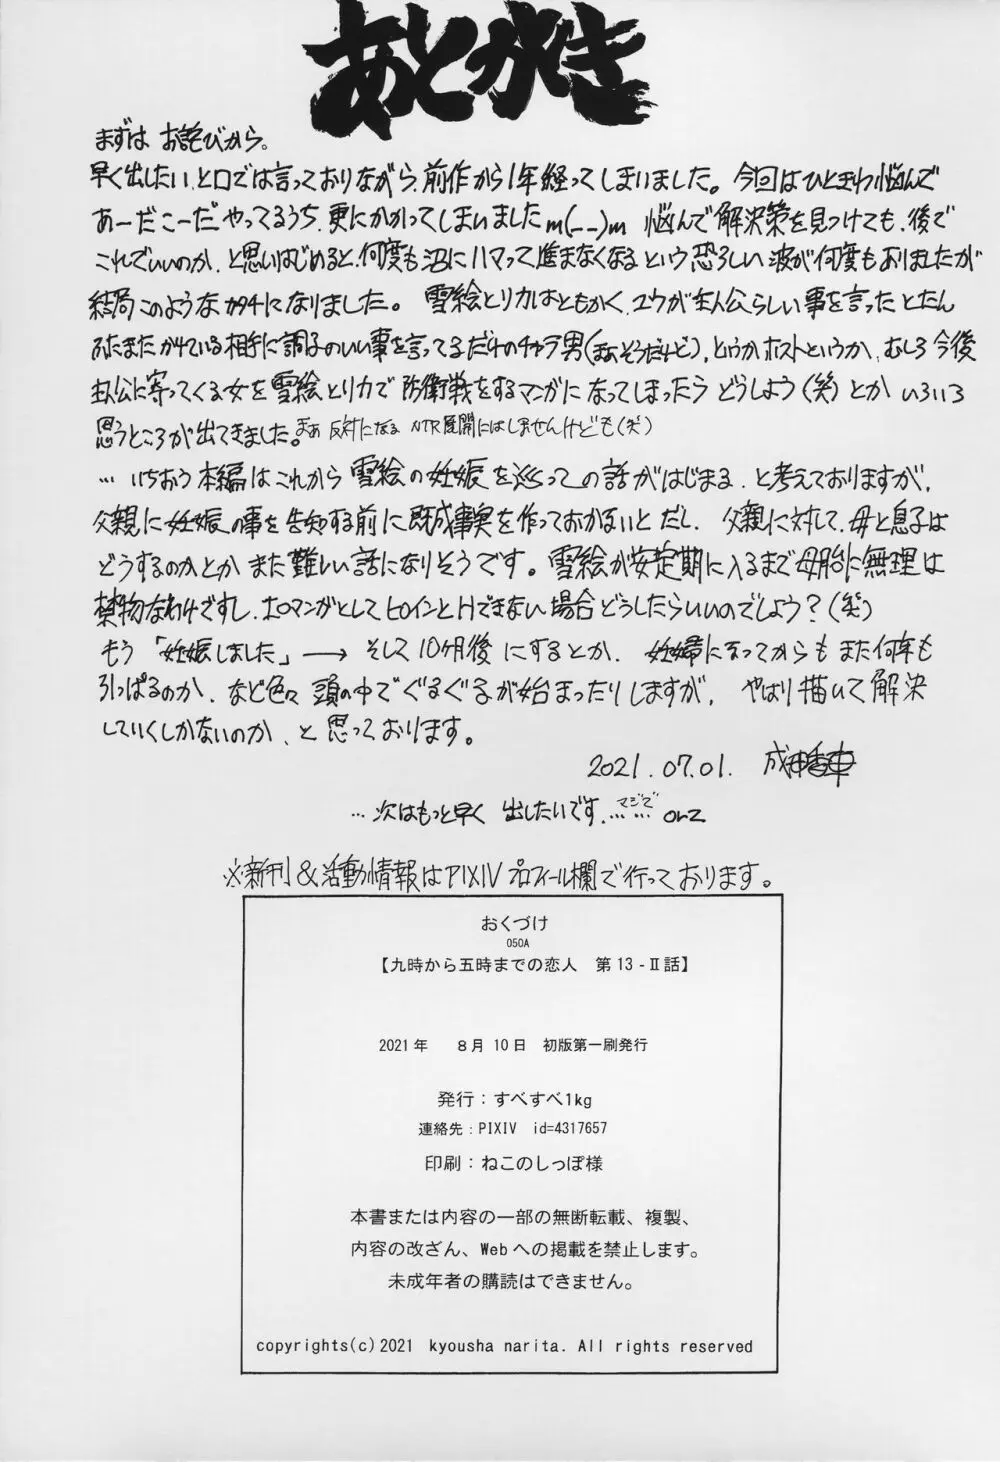 あとがき
まずは お詫びから。
早く出したい、と口では言っておりながら、前作から1年経ってしまいました。今回はひときわ悩んで
あーだこーだやってるうち、更にかかってしまいましたm(__)m 悩んで解決策を見つけても、後で
これでいいのか、と思いはじめると、何度も沼にハマって進まなくなるという恐ろしい波が何度もありましたが
結局このようなカタチになりました。雪絵とリカはともかく、ユウが主人公らしい事を言ったとたん
ふたまたかけている相手に調子のいい事を言ってるだけのチャラ男(まあそうだけど)、というかホストというか、むしろ今後
主人公に寄ってくる女を雪絵とリカで防衛戦をするマンガになってしまったらどうしよう(笑)とかいろいろ
思うところが出てきました。まぁ反対になるNTR展開にはしませんけども(笑)
…いちおう本編はこれから雪絵の妊娠を巡っての話がはじまる、と考えておりますが、
父親に妊娠の事を告知する前に既成事実を作っておかないとだし、父親に対して、母と息子は
どうするのかとかまた難しい話になりそうです。雪絵が安定期に入るまで母胎に無理は
禁物なわけですし、エロマンガとしてヒロインとHできない場合どうしたらいいのでしょう?(笑)
もう「妊娠しました」→そして10ヶ月後にするとか、妊婦になってからもまた何年も
引っぱるのか、など色々頭の中でぐるぐるが始まったりしますが、やはり描いて解決
していくしかないのか、と思っております。
2021.07.01. 成田香車
…次はもっと早く出したいです、マジで…… orz
※新刊&活動情報はPIXIVプロフィール欄で行っております。
おくづけ
050A
【九時から五時までの恋人 第13-Ⅱ話】
2021年 8月10日 初版第一刷発行
発行:すべすべ1kg
連絡先:PIXIV id=4317657
印刷:ねこのしっぽ様
本書または内容の一部の無断転載、複製、
内容の改ざん、Webへの掲載を禁止します。
未成年者の購読はできません。
copyrights(c)2021 kyousha narita. All rights reserved